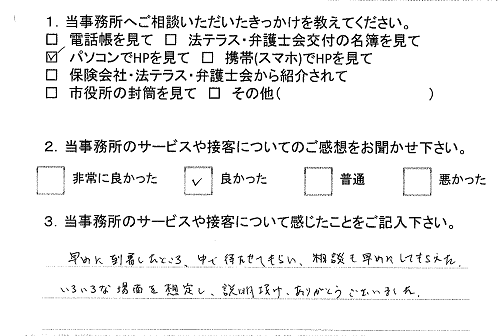 1. 当事務所へご相談いただいたきっかけを教えてください。
□ 電話帳を見て □ 法テラス・弁護士会交付の名簿を見て
☑ パソコンでHPを見て □ 携帯(スマホ)でHPを見て
□ 保険会社・法テラス・弁護士会から紹介されて
□ 市役所の封筒を見て □ その他( )
2. 当事務所のサービスや接客についてのご感想をお聞かせ下さい。
□ 非常に良かった ☑ 良かった □ 普通 □ 悪かった
3. 当事務所のサービスや接客について感じたことをご記入下さい。
早めに到着したところ、中で待たせてもらい、相談も早めにしてもらえた。
いろいろな場面を想定し、説明頂け、ありがとうございました。